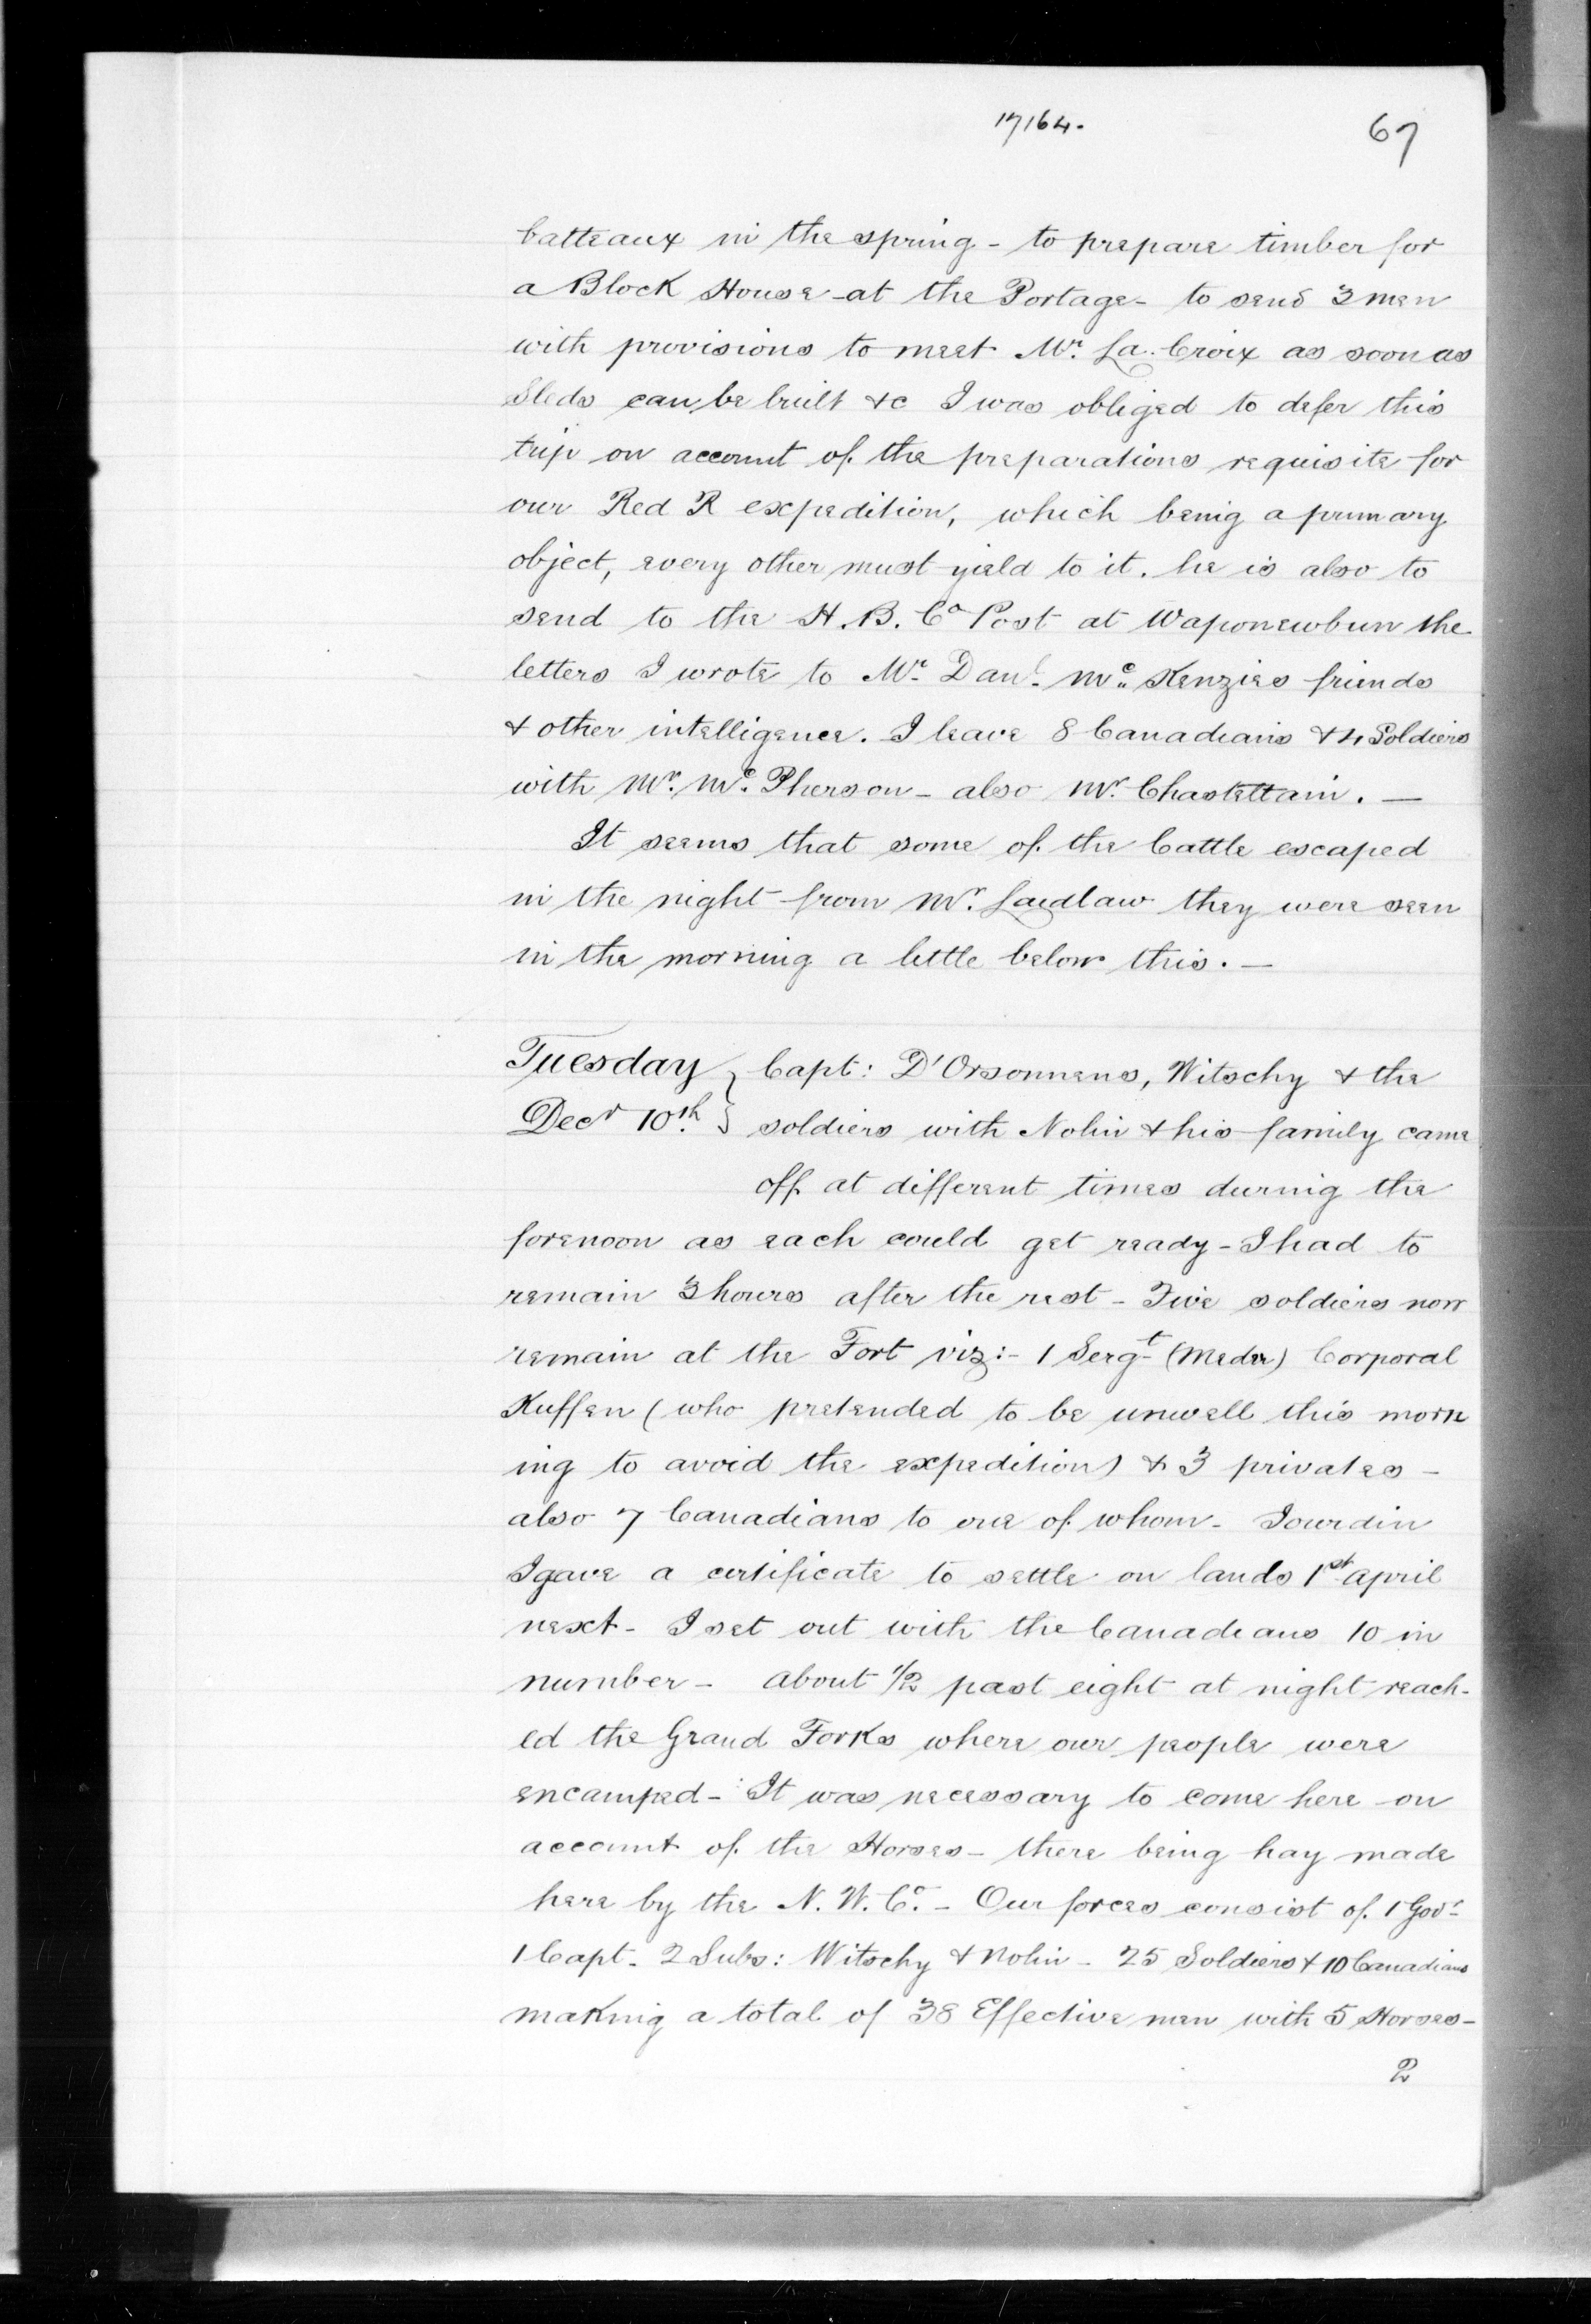 17164.
67
batteaux in the spring - to prepare timber for
a Block House - at the Portage - to send 3 men
with provisions to meet Mr. La Croix as soon as
Sleds can be built &c I was obliged to defer this
trip on account of the preparations requisite for
our Red R expedition, which being a primary
object, every other must yield to it. he is also to
send to the H. B. Co Post at Waponewbun the
letters I wrote to Mr. Danl. Mc. Kenzies friends
& other intelligence. I leave 8 Canadians & 4 Soldiers
with Mr. Mc. Pherson - also Mr. Chastettain. —
It seems that some of the Cattle escaped
in the night from Mr. Laidlaw they were seen
in the morning a little below this. —
Tuesday } Capt: D'Orsonnens, Witschy & the
Decr 10th. } soldiers with Nolin & his family came
off at different times during the
forenoon as each could get ready - I had to
remain 3 hours after the rest - Five soldiers now
remain at the Fort viz:- 1 Sergt (Meder) Corporal
Kuffen (who pretended to be unwell this morn
ing to avoid the expedition) & 3 privates -
also 7 Canadians to one of whom - Jourdin
I gave a certificate to settle on lands 1st April
next - I set out with the Canadians 10 in
number - about 1/2 past eight at night reach-
ed the Grand Forks where our people were
encamped - It was necessary to come here on
account of the Horses - there being hay made
here by the N. W. Co. - Our forces consist of 1 Govr
1 Capt. 2 Subs: Witschy & Nolin - 25 Soldiers & 10 Canadians
making a total of 38 Effective men with 5 Horses -
2